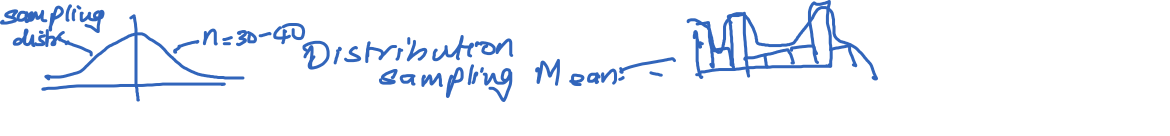 sampling
distr.
n=30-40
Distribution
sampling Mean: